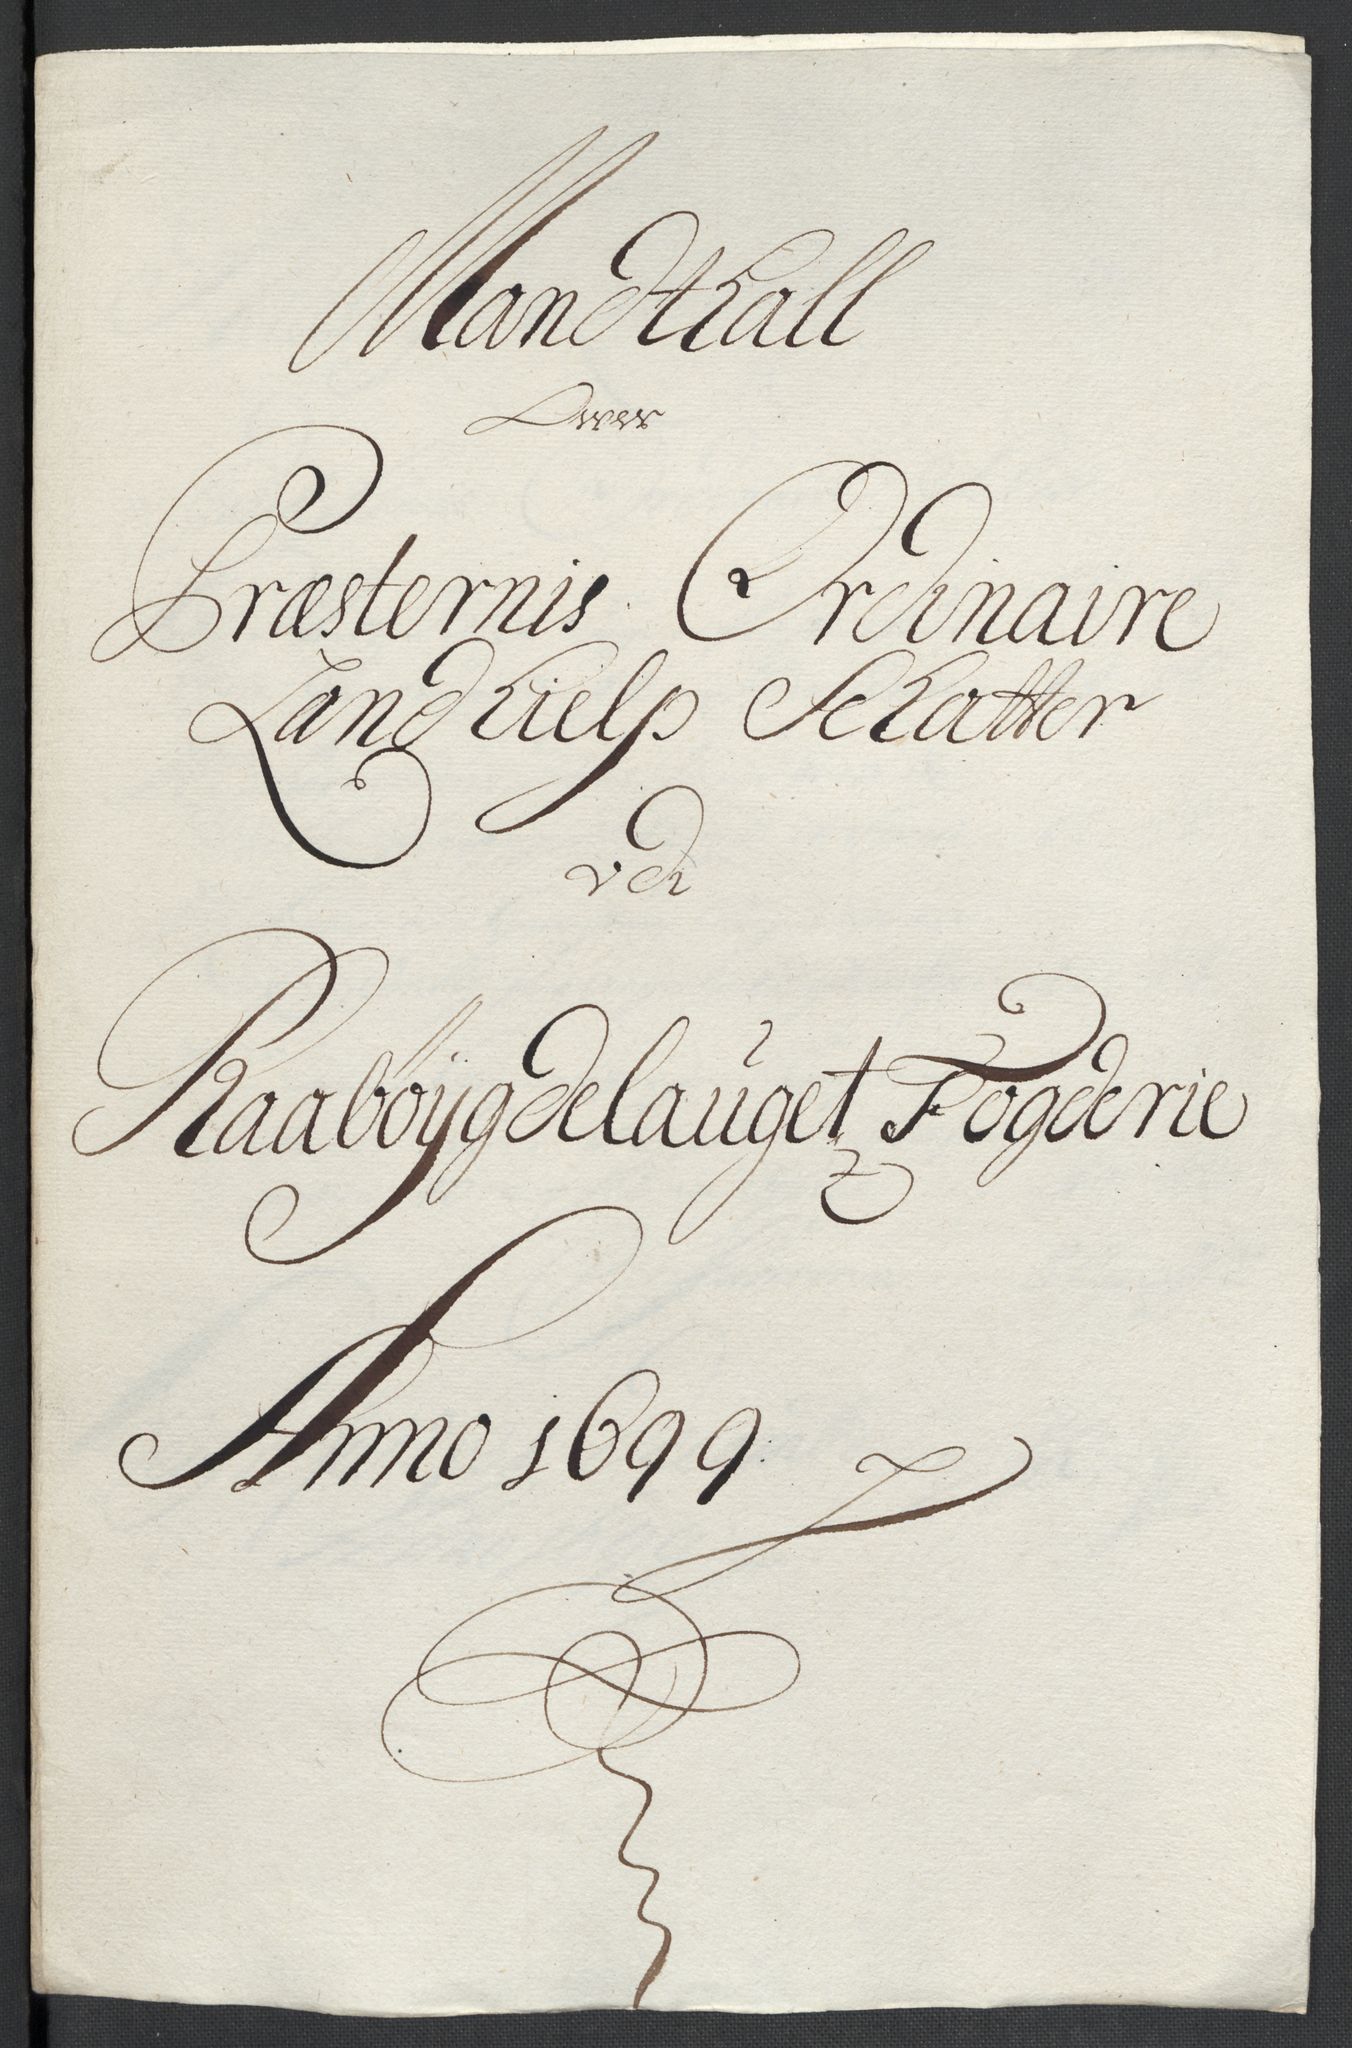 Mandthall
Over
Præsternis Ordinaire
Landhielp Schatter
udi
Raaboygdelauget Fogderie
Anno 1699